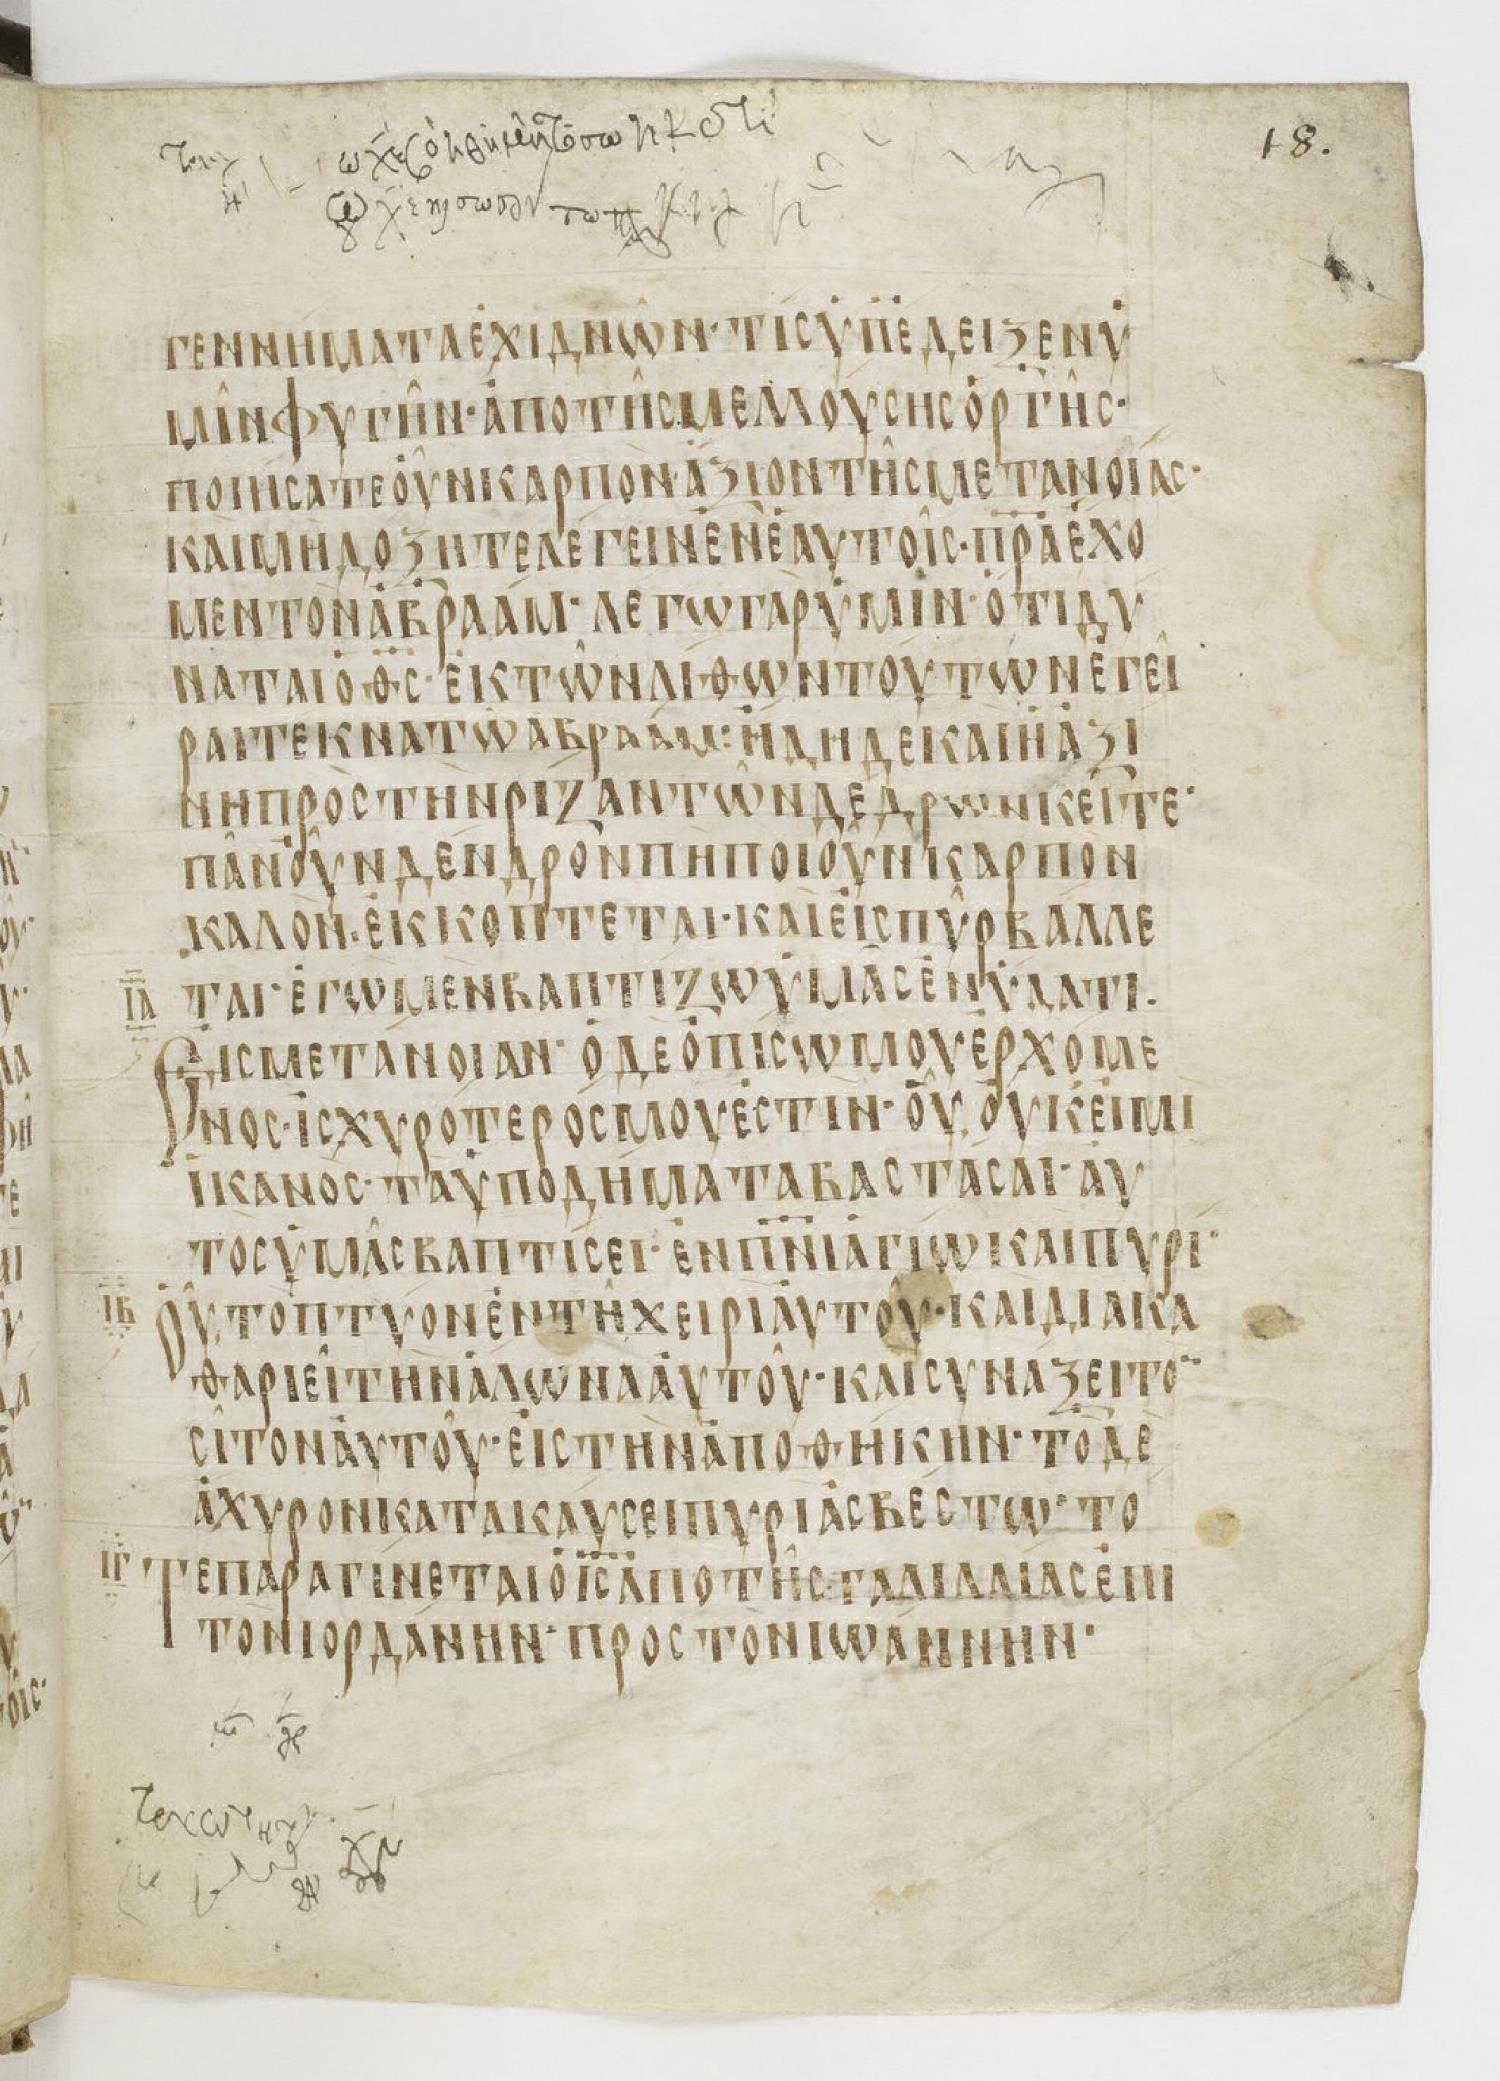 18.
ΓΕΝΝΗΜΑΤΑ ἘΧΙΔΝῶΝ· ΤΙΣ ὙΠΕΔΕΙΞΕΝ Ὑ
ΜῖΝ ΦΥΓΗ͂Ν· ἈΠΟ ΤΗ͂Σ ΜΕΛΛΟΥΣΗΣ ὈΡΓΗ͂Σ·
ΠΟΙΗΣΑΤΕ ΟΥ̓͂Ν ΚΑΡΠΟΝ ἌΞΙΟΝ ΤΗ͂Σ ΜΕΤΑΝΟΙΑΣ·
ΚΑΙ ΜΗ ΔΟΞΗΤΕ ΛΕΓΕΙΝ ἘΝ ἙΑΥΤΟΙ͂Σ· ΠΡΑ ἘΧΟ
ΜΕΝ ΤΟΝ ἈΒΡΑΑΜ· ΛΕΓΩ ΓΑΡ ὙΜΙΝ· ὉΤΙ ΔΥ
ΝΑΤΑΙ Ὁ ΘΣ· ἘΚ ΤΩ͂Ν ΛΙΘΩΝ ΤΟΥΤΩΝ ἘΓΕΙ͂
ΡΑΙ ΤΕΚΝΑ ΤΩ͂ ΑΒΡΑΑΜ: ἨΔΗ ΔΕ ΚΑΙ Ἡ ἈΞΙ
ΝΗ ΠΡΟΣ ΤΗΝ ΡΙΖΑΝ ΤΩ͂Ν ΔΕΔΡΩΝ ΚΕΙΤΕ·
ΠΑ͂Ν ΟΥ̓͂Ν ΔΕΝΔΡΟΝ ΠΗ ΠΟΙΟΥ͂Ν ΚΑΡΠΟΝ
ΚΑΛΟΝ· ἘΚΚΟΠΤΕΤΑΙ· ΚΑΙ ἘΙΣ ΠΥ͂Ρ ΒΑΛΛΕ
ΙΑ ΤΑΙ· ἘΓΩ ΜΕΝ ΒΑΠΤΙΖΩ ὙΜΑ͂Σ ἘΝ ὙΔΑΤΙ.
ἘΙΣ ΜΕΤΑΝΟΙΑΝ· Ὁ ΔΕ ὈΠΙΣΩ ΜΟΥ ἘΡΧΟΜΕ
ΝΟΣ· ἸΣΧΥΡΟΤΕΡΟΣ ΜΟΥ ἘΣΤΙΝ· ΟὟ ΟΥ̓Κ ΕἸΜΙ
ἹΚΑΝΟΣ· ΤΑ ὙΠΟΔΗΜΑΤΑ ΒΑΣΤΑΣΑΙ· ΑΥ
ΤΟΣ ὙΜΑ͂Σ ΒΑΠΤΙΣΕΙ· ἘΝ ΠΝΙ ἉΓΙΩ ΚΑΙ ΠΥΡΙ·
ΙΒ ΟὟ ΤΟ ΠΤΥΟΝ ἘΝ ΤΗ͂ ΧΕΙΡΙ ΑΥ̓ΤΟΥ͂· ΚΑΙ ΔΙΑΚΑ
ΘΑΡΙΕΙ͂ ΤΗΝ ἉΛΩΝΑ ΑΥ̓ΤΟΥ͂· ΚΑΙ ΣΥΝΑΞΕΙ ΤΟ
ΣΙ͂ΤΟΝ ΑΥ̓ΤΟΥ͂· ΕἸΣ ΤΗΝ ἈΠΟΘΗΚΗΝ· ΤΟ ΔΕ
ἈΧΥΡΟΝ ΚΑΤΑΚΑΥΣΕΙ ΠΥΡΙ ἈΣΒΕΣΤΩ· ΤΟ
ΙΓ ΤΕ ΠΑΡΑΓΙΝΕΤΑΙ Ὁ ΙΣ ἈΠΟ ΤΗ͂Σ ΓΑΛΙΛΑΙΑΣ ἘΠΙ
ΤΟΝ ΙΟΡΔΑΝΗΝ· ΠΡΟΣ ΤΟΝ ΙΩΑΝΝΗΝ·